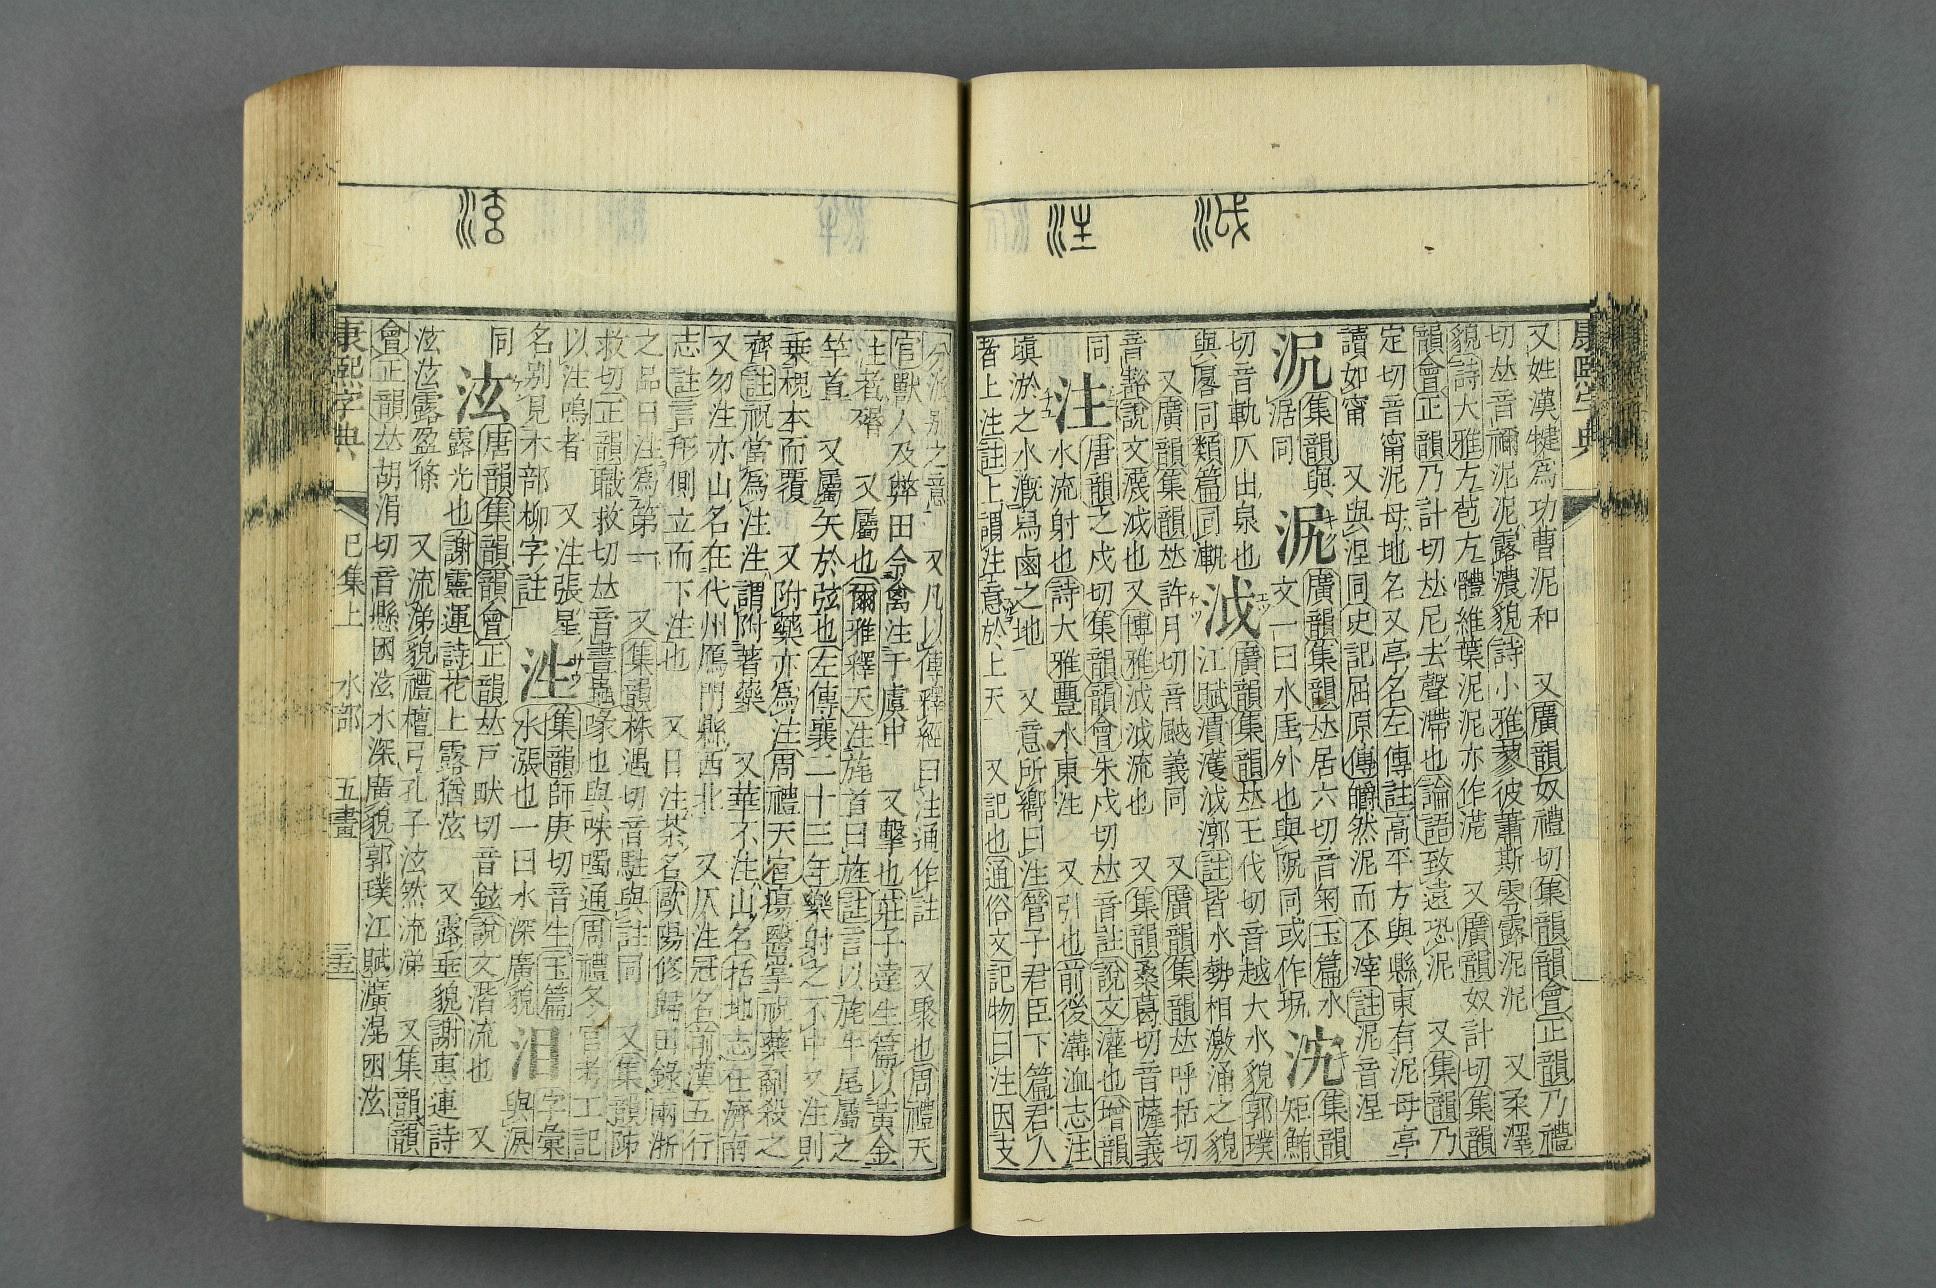 康熙字典
泧
注
又姓漢犍爲功曹泥和 又廣韻奴禮切集韻韻會正韻乃禮
切𠀤音禰泥泥露濃貌詩小雅蓼彼蕭斯零露泥泥 又柔澤
貌詩大雅方苞方體維葉泥泥亦作苨 又廣韻奴計切集韻
韻會正韻乃計切𠀤尼去聲滯也論語致遠恐泥 又集韻乃
定切音甯泥母地名又亭名左傳註高平方與縣東有泥母亭
讀如甯 又與涅同史記屈原傳皭然泥而不滓註泥音涅
集韻與涺同
泦 廣韻集韻𠀤居六切音匊玉篇水
文一曰水厓外也與 同或作
集韻矩鮪
切音軌仄出泉也
與 同類篇同
泧 廣韻集韻𠀤王伐切音越大水貌郭璞
江賦潰濩泧漷註皆水勢相激涌之貌
又廣韻集韻𠀤許月切音颰義同 又廣韻集韻𠀤呼括切
音豁說文瀎泧也又博雅泧泧流也 又集韻桑葛切音薩義
同 注 唐韻之戍切集韻韻會朱戍切𠀤音註說文灌也增韻
水流射也詩大雅豐水東注 又引也前後溝洫志注
塡淤之水漑舄鹵之地 又意所嚮曰注管子君臣下篇君人
者上注註上謂注意於上天 又記也通俗文記物曰注因支
泫
分派別之意 又凡以傳釋經曰注通作註 又聚也周禮天
官獸人及弊田令禽注于虞中 又擊也莊子達生篇以黃金
注者殙 又屬也爾雅釋天注旄首曰旌註言以旄牛尾屬之
竿首 又屬矢於弦也左傳襄二十三年樂射之不中又注則
乗槐本而覆 又附藥亦爲注周禮天官瘍醫掌祝藥劀殺之
齊註祝當爲注注謂附著藥 又華不注山名括地志在濟南
又勿注亦山名在代州鴈門縣西北 又仄注冠名前漢五行
志註言形側立而下注也 又日注茶名歐陽修歸田錄兩浙
之品日注爲第一 又集韻株遇切音駐與註同 又集韻陟
救切正韻職救切𠀤音晝蟲喙也與咮噣通周禮冬官考工記
以注鳴者 又注張星
名別見木部柳字註
泩 集韻師庚切音生玉篇
水漲也一曰水深廣貌
泪 字彙
與淚
同 泫 唐韻集韻韻會正韻𠀤戸畎切音鉉說文湝流也 又
露光也謝靈運詩花上露猶泫 又露垂貌謝惠連詩
泫泫露盈條 又流涕貌禮檀弓孔子泫然流涕 又集韻韻
會正韻𠀤胡涓切音懸㘣泫水深廣貌郭璞江賦瀇滉㘣泫
康熙字典 巳集上 水部 五畫 三五